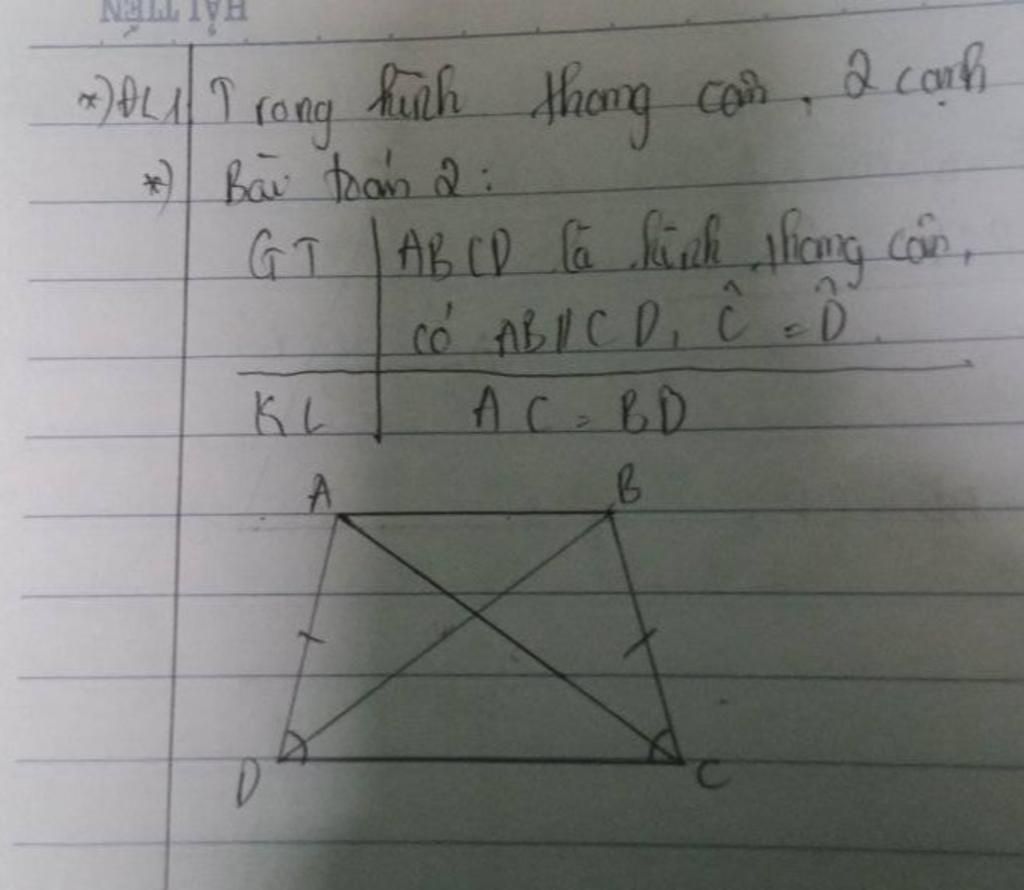 HẢI TIẾN
*) ĐL1 Trong hình thang cân, 2 cạnh
*) Bài toán 2:
GT ABCD là hình thang cân,
có AB//CD, Ĉ = D̂.
KL AC = BD
A B
D C